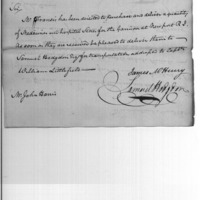 Sir,
Mr. Francis has been written to purchase and deliver a quantity
of Medicines and hospital Stores for the Garrison at Newport R.I.
As soon as they are received be pleased to deliver them to
Samuel Hodgdon Esq. for transportation addressed to Captn
William Littlefield
James McHenry
Samuel Hodgdon
Mr. John Harris